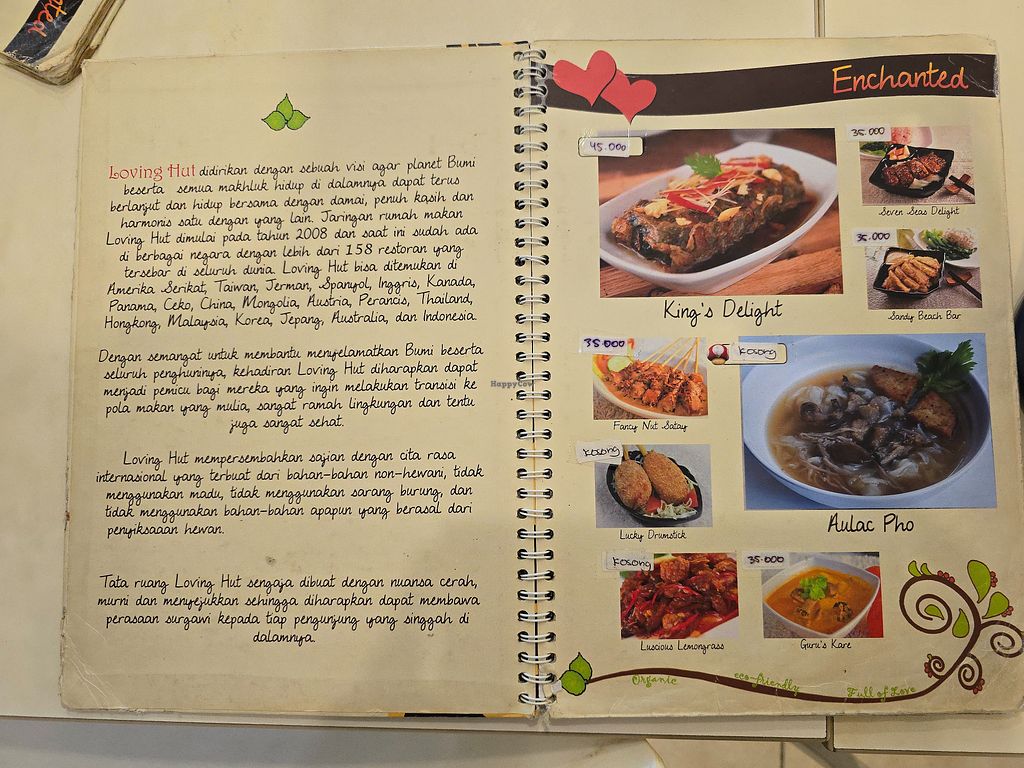 Loving Hut didirikan dengan sebuah visi agar planet Bumi
beserta semua makhluk hidup di dalamnya dapat terus
berlanjut dan hidup bersama dengan damai, penuh kasih dan
harmonis satu dengan yang lain. Jaringan rumah makan
Loving Hut dimulai pada tahun 2008 dan saat ini sudah ada
di berbagai negara dengan lebih dari 158 restoran yang
tersebar di seluruh dunia. Loving Hut bisa ditemukan di
Amerika Serikat, Taiwan, Jerman, Spanyol, Inggris, Kanada,
Panama, Ceko, China, Mongolia, Austria, Perancis, Thailand,
Hongkong, Malaysia, Korea, Jepang, Australia, dan Indonesia.
Dengan semangat untuk membantu menyelamatkan Bumi beserta
seluruh penghuninya, kehadiran Loving Hut diharapkan dapat
menjadi pemicu bagi mereka yang ingin melakukan transisi ke
pola makan yang mulia, sangat ramah lingkungan dan tentu
juga sangat sehat.
Loving Hut mempersembahkan sajian dengan cita rasa
internasional yang terbuat dari bahan-bahan non-hewani, tidak
menggunakan madu, tidak menggunakan sarang burung, dan
tidak menggunakan bahan-bahan apapun yang berasal dari
penyiksaaan hewan.
Tata ruang Loving Hut sengaja dibuat dengan nuansa cerah,
murni dan menyejukkan sehingga diharapkan dapat membawa
perasaan surgawi kepada tiap pengunjung yang singgah di
dalamnya.
HappyCow
Enchanted
45.000
King's Delight
35.000
Seven Seas Delight
35.000
Sandy Beach Bar
35.000
Fancy Nut Satay
Kosong
Aulac Pho
Kosong
Lucky Drumstick
Kosong
Luscious Lemongrass
35.000
Guru's Kare
Organic
eco-friendly
Full of Love